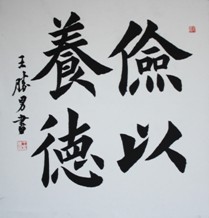 儉以
養德
王勝男書